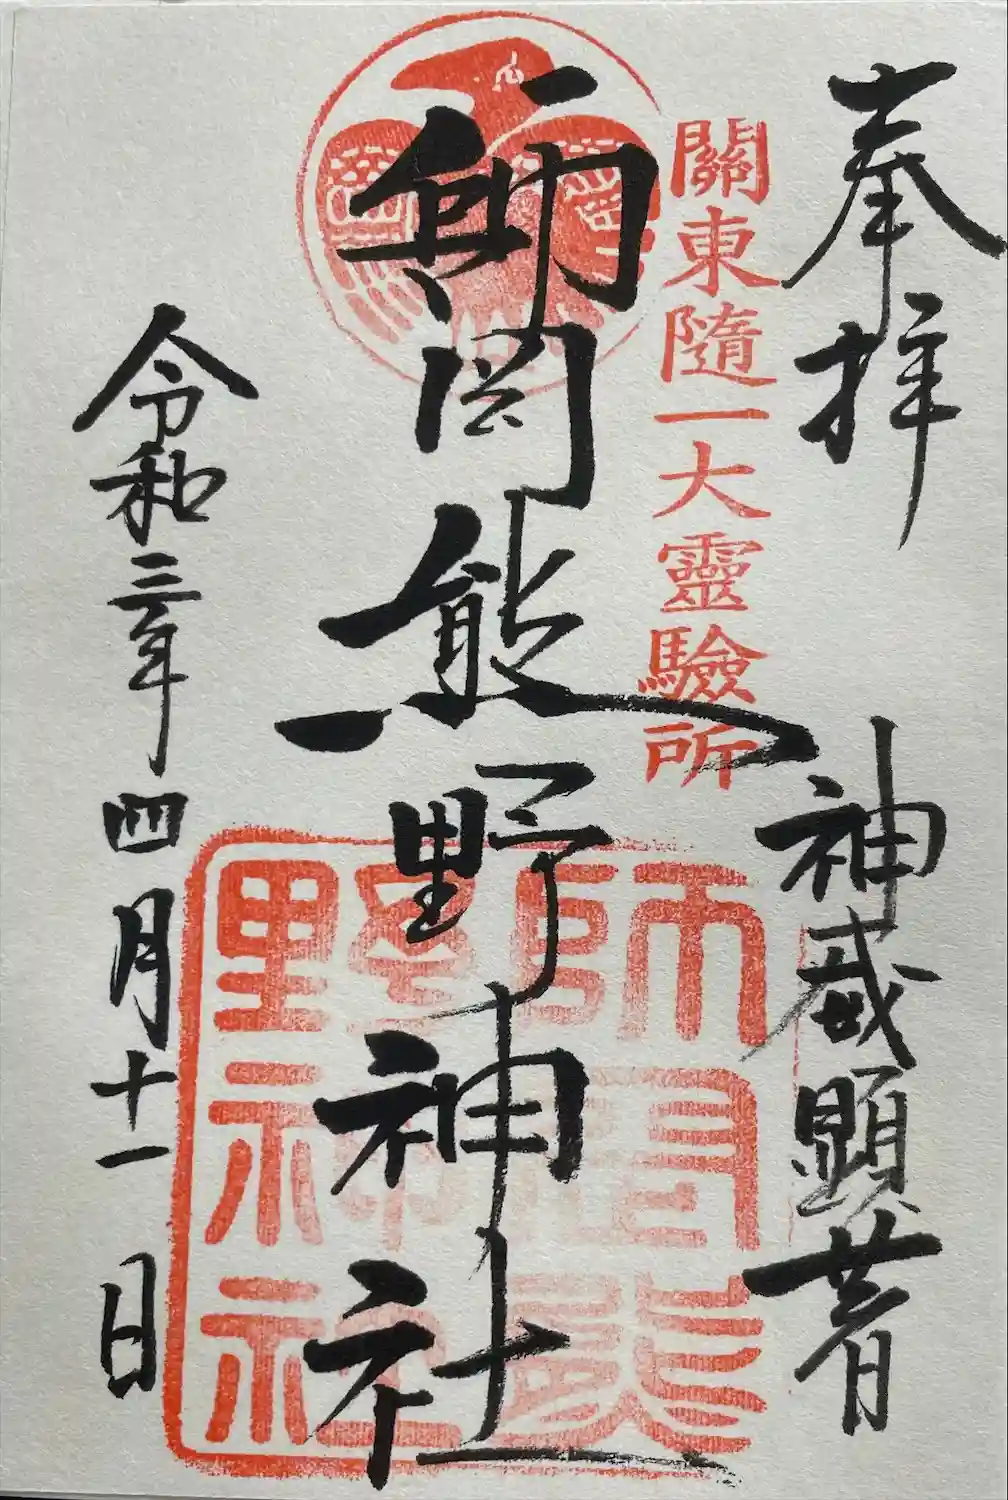 奉拝
神威顕著
關東隨一大靈驗所
師岡熊野神社
令和三年
四月十一日
師岡熊野神社